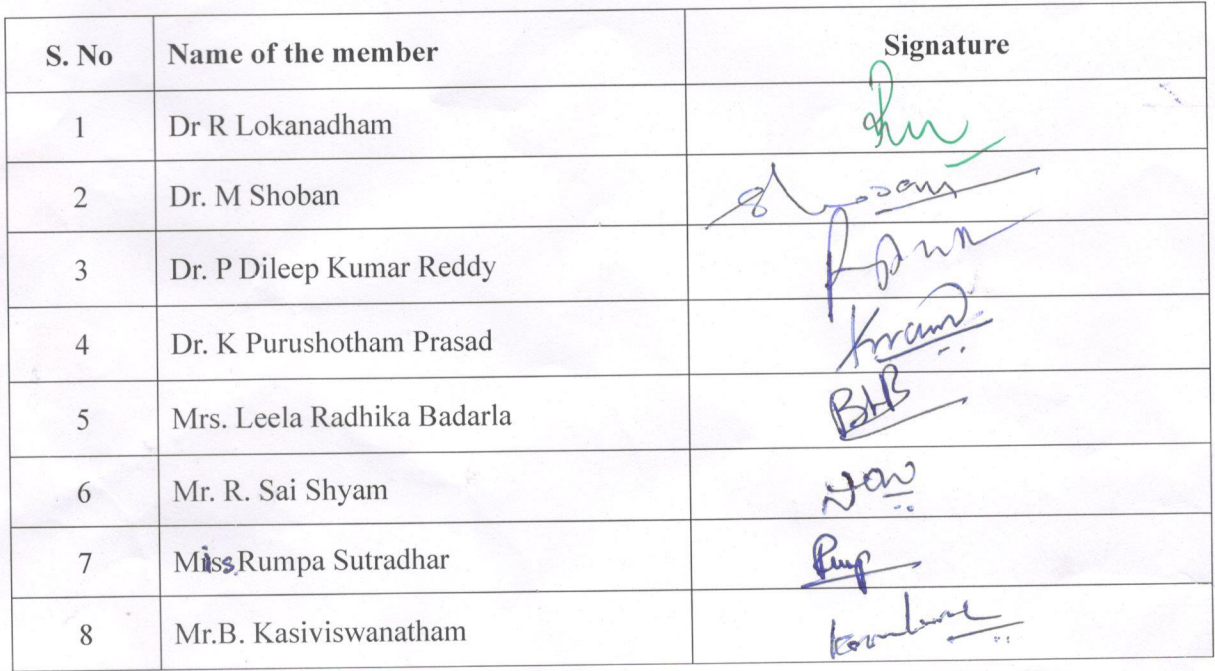 S. No Name of the member Signature
1 Dr R Lokanadham
2 Dr. M Shoban
3 Dr. P Dileep Kumar Reddy
4 Dr. K Purushotham Prasad
5 Mrs. Leela Radhika Badarla BLB
6 Mr. R. Sai Shyam
7 Miss Rumpa Sutradhar
8 Mr.B. Kasiviswanatham